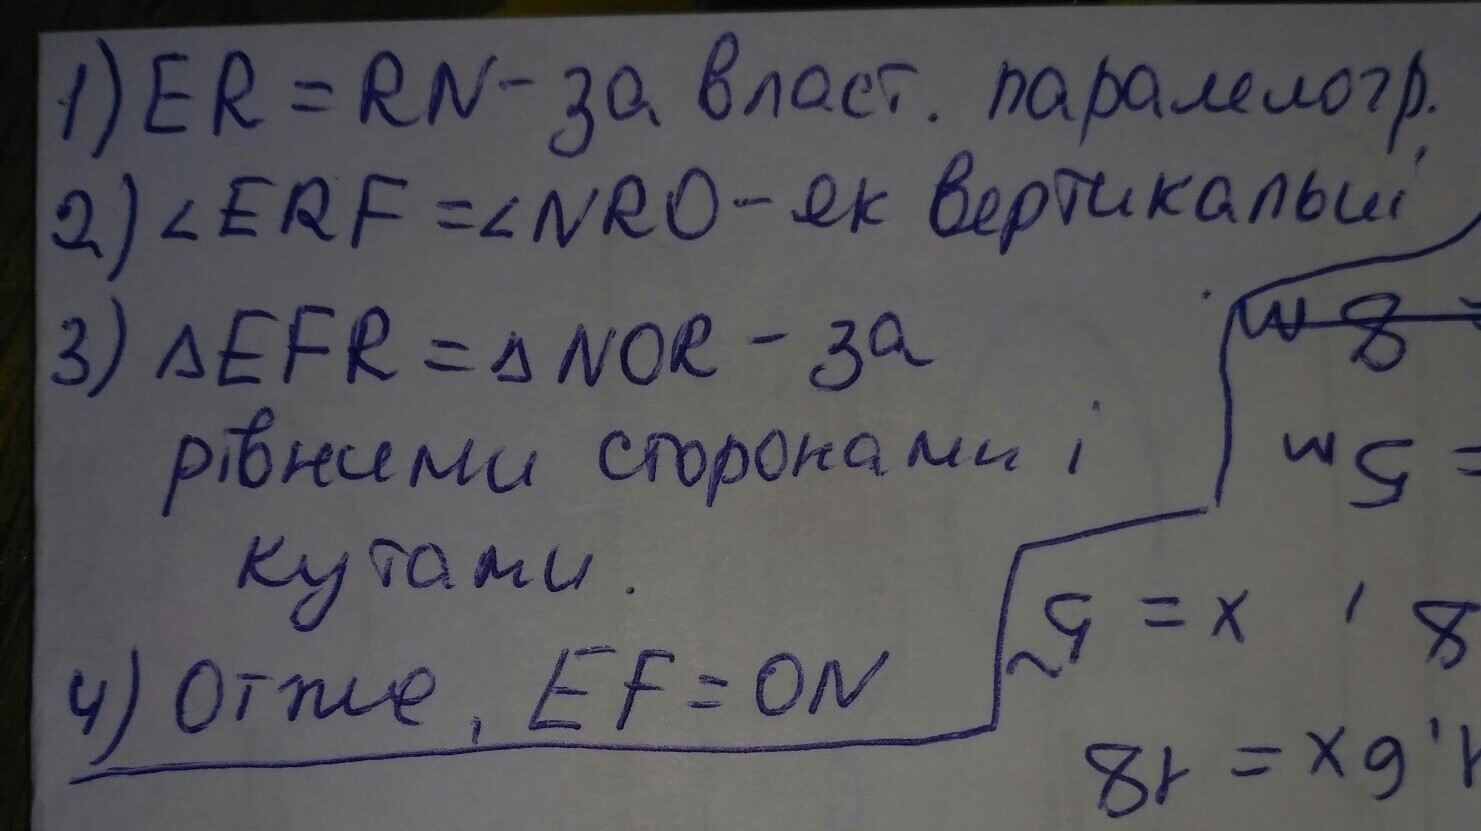 1) ER = RN - за власт. паралелогр.
2) ∠ERF = ∠NRO - як вертикальні
3) ΔEFR = ΔNOR - за
рівними сторонами і
кутами.
4) Отже, EF = ON
= 8m
= 5m
8, x = 5
1,6x = 18